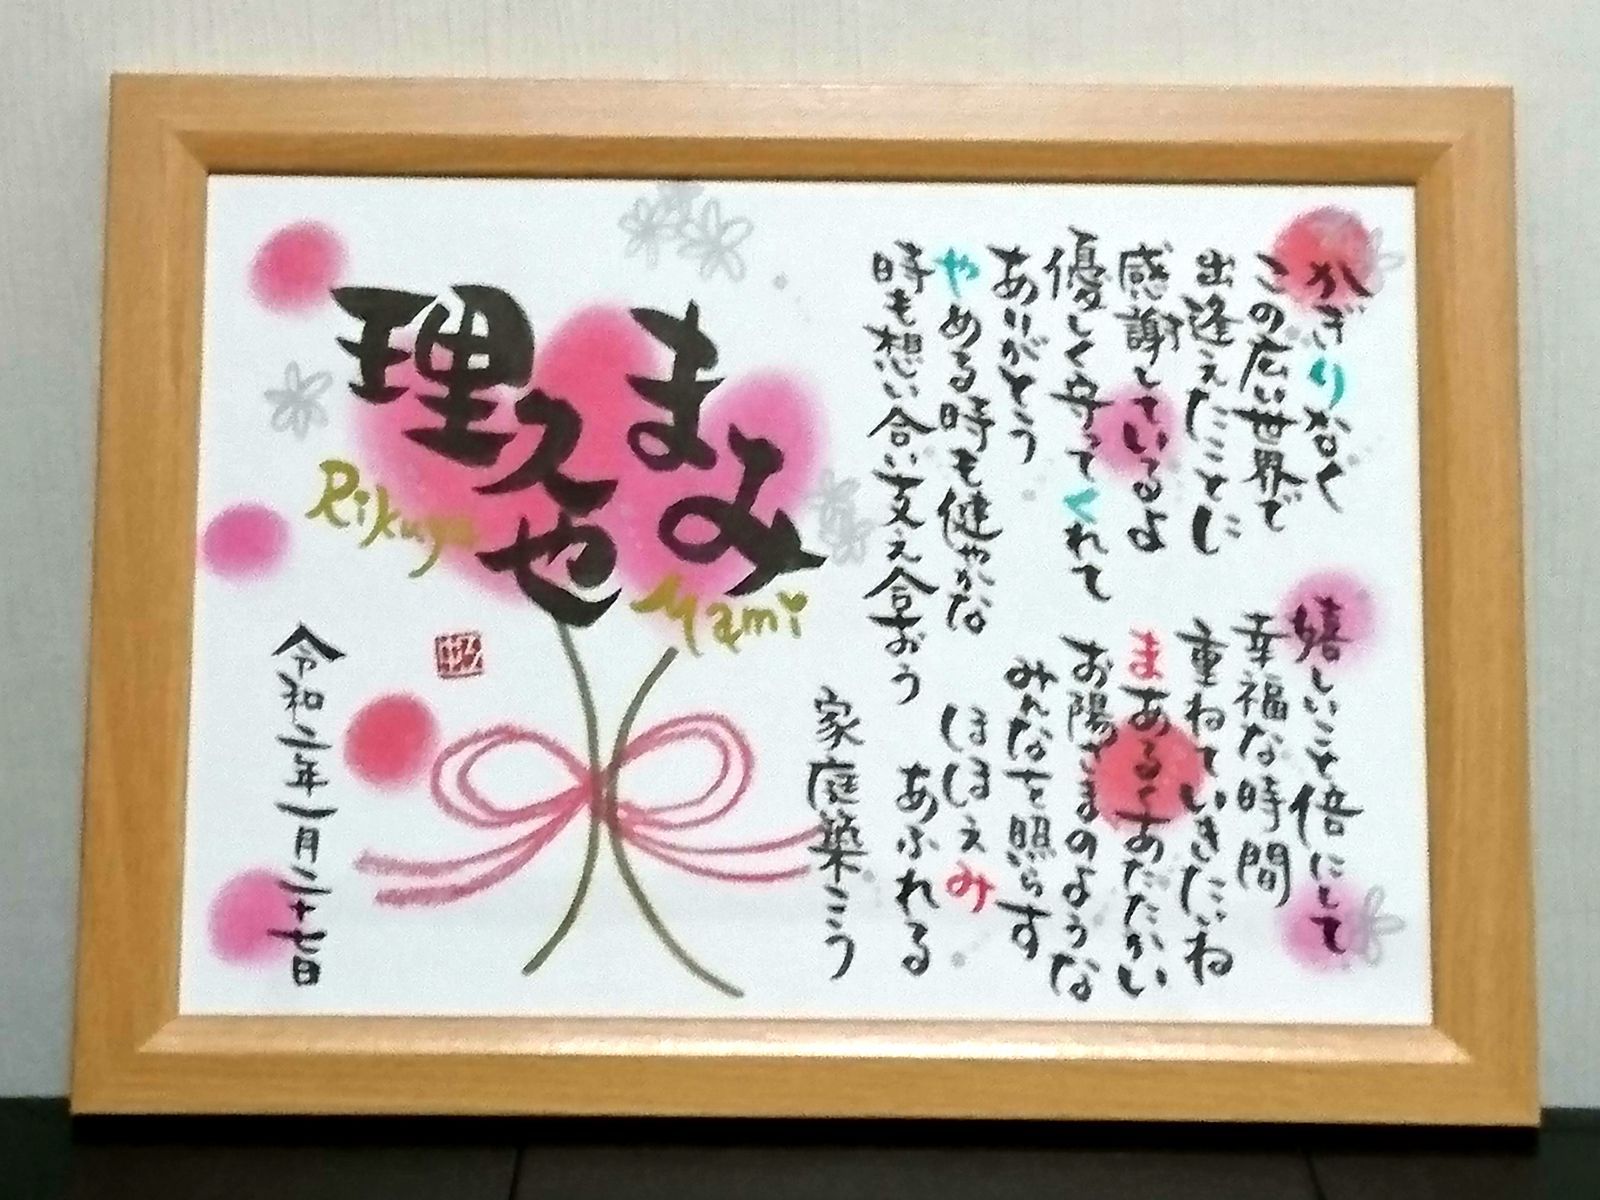 かぎりなく
この広い世界で
出逢えたことに
感謝しているよ
優しく守ってくれて
ありがとう
やめる時も健やかな
時も想い合い支え合おう
嬉しいこと倍にして
幸福な時間
重ねていきたいね
まあるくあたたかい
お陽さまのような
みんなを照らす
ほほえみ
あふれる
家庭築こう
まみ
Mami
理久や
Rikuya
令和二年二月二十七日